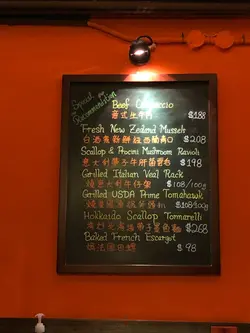 Special
Recommendation
Beef Carpaccio
意式生牛肉 $188
Fresh New Zealand Mussels
白酒煮新鮮紐西蘭青口 $208
Scallop & Procini Mushroom Ravioli
意大利帶子牛肝菌雲吞 $198
Grilled Italian Veal Rack
燒意大利牛仔架 $108/100g
Grilled USDA Prime Tomahawk
$108/100g
Hokkaido Scallop Tonnarelli
北海道帶子墨魚麵 $268
Baked French Escargot
焗法國田螺 $98